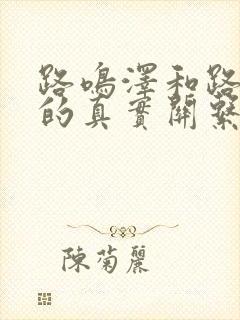 路鳴澤和路
的真實關繫
陳菊麗